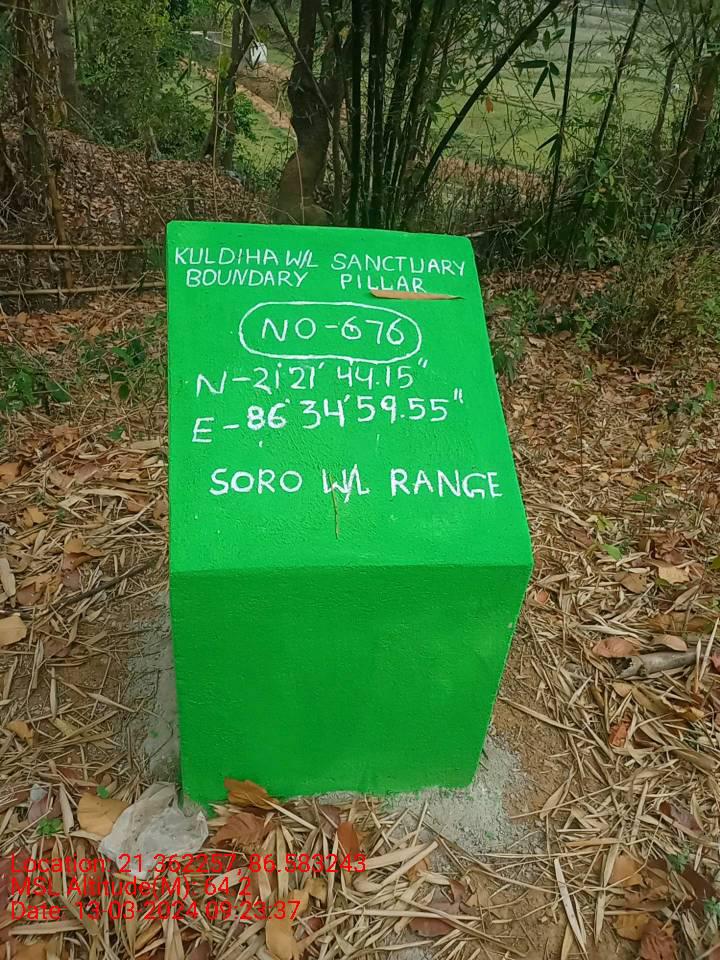 KULDIHA W/L SANCTUARY
BOUNDARY PILLAR
NO-676
N-21°21' 44.15"
E-86°34'59.55"
SORO W/L RANGE
Location: 21.362257, 86.583243
MSL Altitude(M): 64.2
Date: 13-03-2024 09:23:37